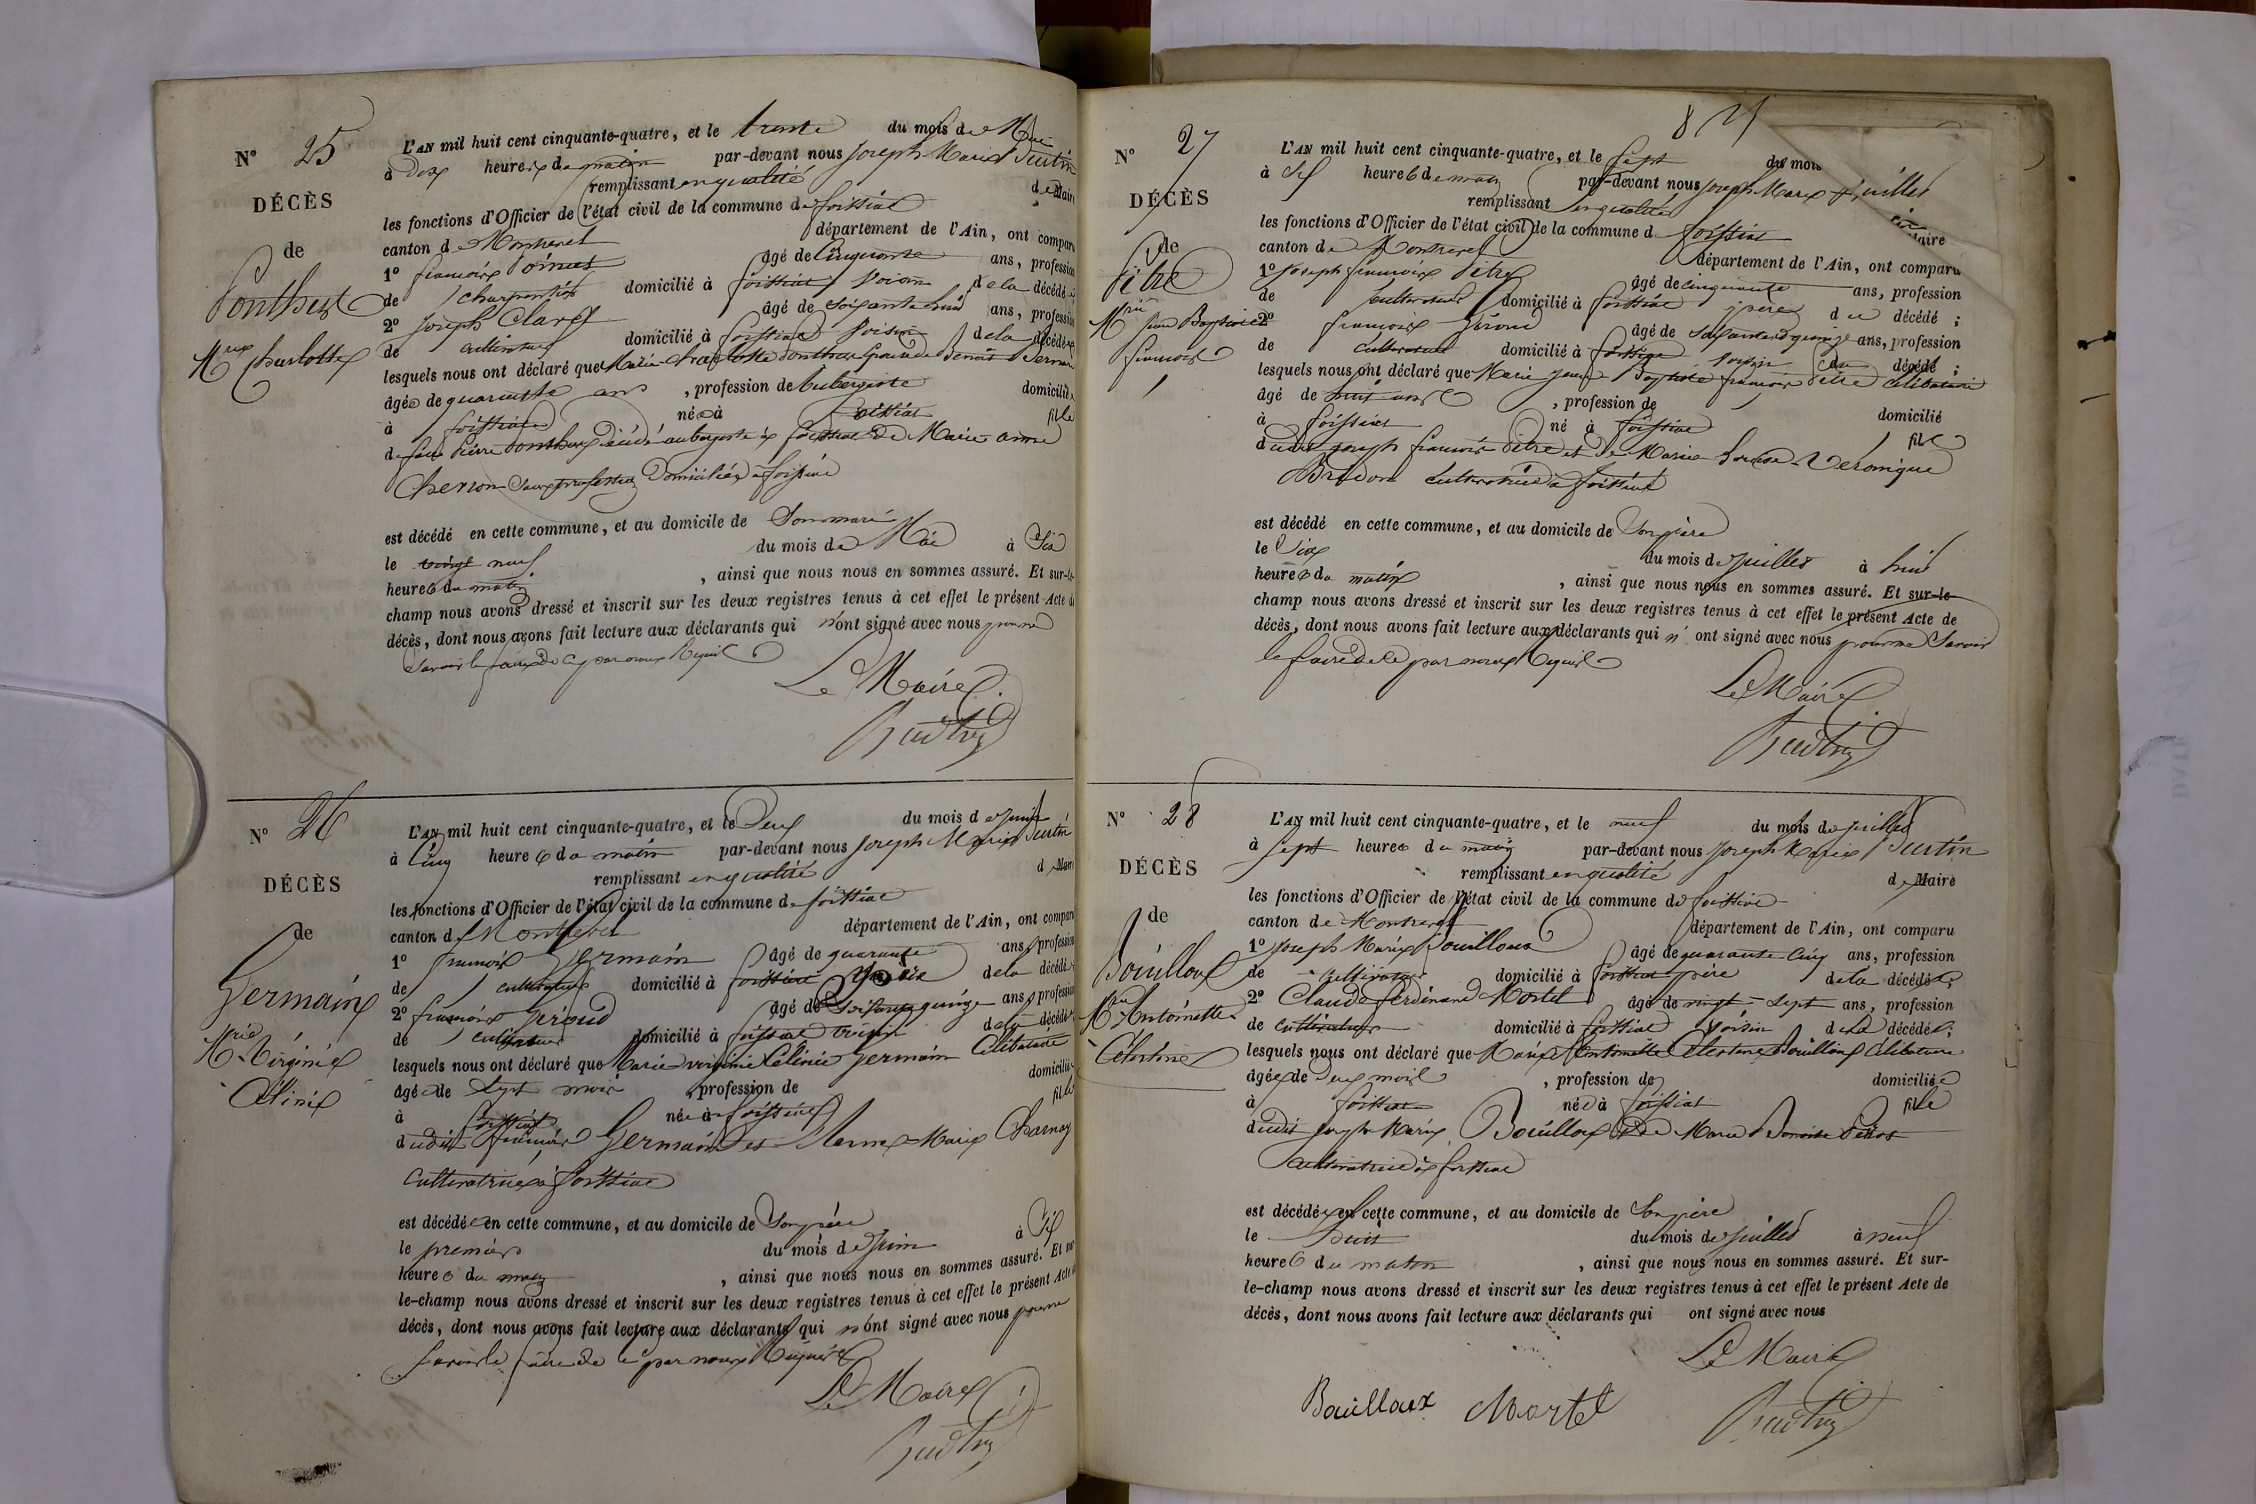 N° 25
DÉCÈS
de
Ponthus
Mrie Charlotte
L'AN mil huit cent cinquante-quatre, et le trente du mois de Mai
à dix heures du matin par-devant nous Joseph Marie
remplissant en qualité de Maire
les fonctions d'Officier de l'état civil de la commune de foissiat
canton de Montrevel département de l'Ain, ont comparu
1° françois âgé de Cinquante ans, profession
de charpentier domicilié à foissiat voisin de la décédée
2° Joseph Claret âgé de soixante huit ans, profession
de cultivateur domicilié à foissiat voisin de la décédée
lesquels nous ont déclaré que Marie Charlotte épouse de Benoit
âgée de quarante ans, profession de Aubergiste domiciliée
à foissiat née à foissiat fille
de feu Pierre décédé aubergiste à foissiat et de Marie anne
sans profession Domiciliée à foissiat
est décédé en cette commune, et au domicile de Son mari
le vingt neuf du mois de Mai à Six
heures du matin, ainsi que nous nous en sommes assuré. Et sur-le-
champ nous avons dressé et inscrit sur les deux registres tenus à cet effet le présent Acte de
décès, dont nous avons fait lecture aux déclarants qui n'ont signé avec nous pour ne
Savoir le faire de ce par nous Requis
Le Maire
N° 26
DÉCÈS
de
Germain
Mrie Virginie
Célinie
L'AN mil huit cent cinquante-quatre, et le Deux du mois de juin
à Cinq heures du matin par-devant nous Joseph Marie
remplissant en qualité de Maire
les fonctions d'Officier de l'état civil de la commune de foissiat
canton de Montrevel département de l'Ain, ont comparu
1° françois Germain âgé de quarante ans, profession
de cultivateur domicilié à foissiat de la décédée
2° françois Giroud âgé de Soixante quinze ans, profession
de cultivateur domicilié à foissiat voisin de la décédée
lesquels nous ont déclaré que Marie virginie Célinie Germain Célibataire
âgée de Sept mois, profession de domiciliée
à foissiat née à foissiat fille
dudit françois Germain et de Marie Charnay
Cultivatrice à foissiat
est décédée en cette commune, et au domicile de Son père
le premier du mois de juin à Six
heures du matin, ainsi que nous nous en sommes assuré. Et sur-
le-champ nous avons dressé et inscrit sur les deux registres tenus à cet effet le présent Acte de
décès, dont nous avons fait lecture aux déclarants qui n'ont signé avec nous pour ne
Savoir le faire de ce par nous Requis
Le Maire
N° 27
DÉCÈS
de
Pitre
Mrie jean Baptiste
françois
L'AN mil huit cent cinquante-quatre, et le Sept du mois
juillet
à Six heures du matin par-devant nous Joseph Marie
remplissant en qualité Maire
les fonctions d'Officier de l'état civil de la commune de foissiat
canton de Montrevel département de l'Ain, ont comparu
1° Joseph françois Pitre âgé de cinquante ans, profession
de cultivateur domicilié à foissiat père du décédé ;
2° françois Giroud âgé de Soixante quinze ans, profession
de cultivateur domicilié à foissiat voisin du décédé ;
lesquels nous ont déclaré que Marie jean Baptiste françois Pitre Célibataire
âgé de huit ans, profession de domicilié
à foissiat né à foissiat fils
dudit joseph françois Pitre et de Marie Louise Véronique
cultivatrice à foissiat
est décédé en cette commune, et au domicile de Son père
le Six du mois de juillet à huit
heures du matin, ainsi que nous nous en sommes assuré. Et sur-le-
champ nous avons dressé et inscrit sur les deux registres tenus à cet effet le présent Acte de
décès, dont nous avons fait lecture aux déclarants qui n'ont signé avec nous pour ne Savoir
le faire de ce par nous Requis
Le Maire
N° 28
DÉCÈS
de
Bouilloux
Mrie Antoinette
Célestine
L'AN mil huit cent cinquante-quatre, et le neuf du mois de juillet
à Sept heures du matin par-devant nous Joseph Marie
remplissant en qualité de Maire
les fonctions d'Officier de l'état civil de la commune de foissiat
canton de Montrevel département de l'Ain, ont comparu
1° Joseph Marie Bouilloux âgé de quarante Cinq ans, profession
de cultivateur domicilié à foissiat père de la décédée ;
2° Claude ferdinand Mortel âgé de vingt-sept ans, profession
de cultivateur domicilié à foissiat voisin de la décédée ;
lesquels nous ont déclaré que Marie Antoinette Célestine Bouilloux Célibataire
âgée de Deux mois, profession de domiciliée
à foissiat née à foissiat fille
dudit Joseph Marie Bouilloux et de Marie Benoite
cultivatrice à foissiat
est décédée en cette commune, et au domicile de Son père
le huit du mois de juillet à neuf
heures du matin, ainsi que nous nous en sommes assuré. Et sur-
le-champ nous avons dressé et inscrit sur les deux registres tenus à cet effet le présent Acte de
décès, dont nous avons fait lecture aux déclarants qui ont signé avec nous
Le Maire
Bouilloux Mortel